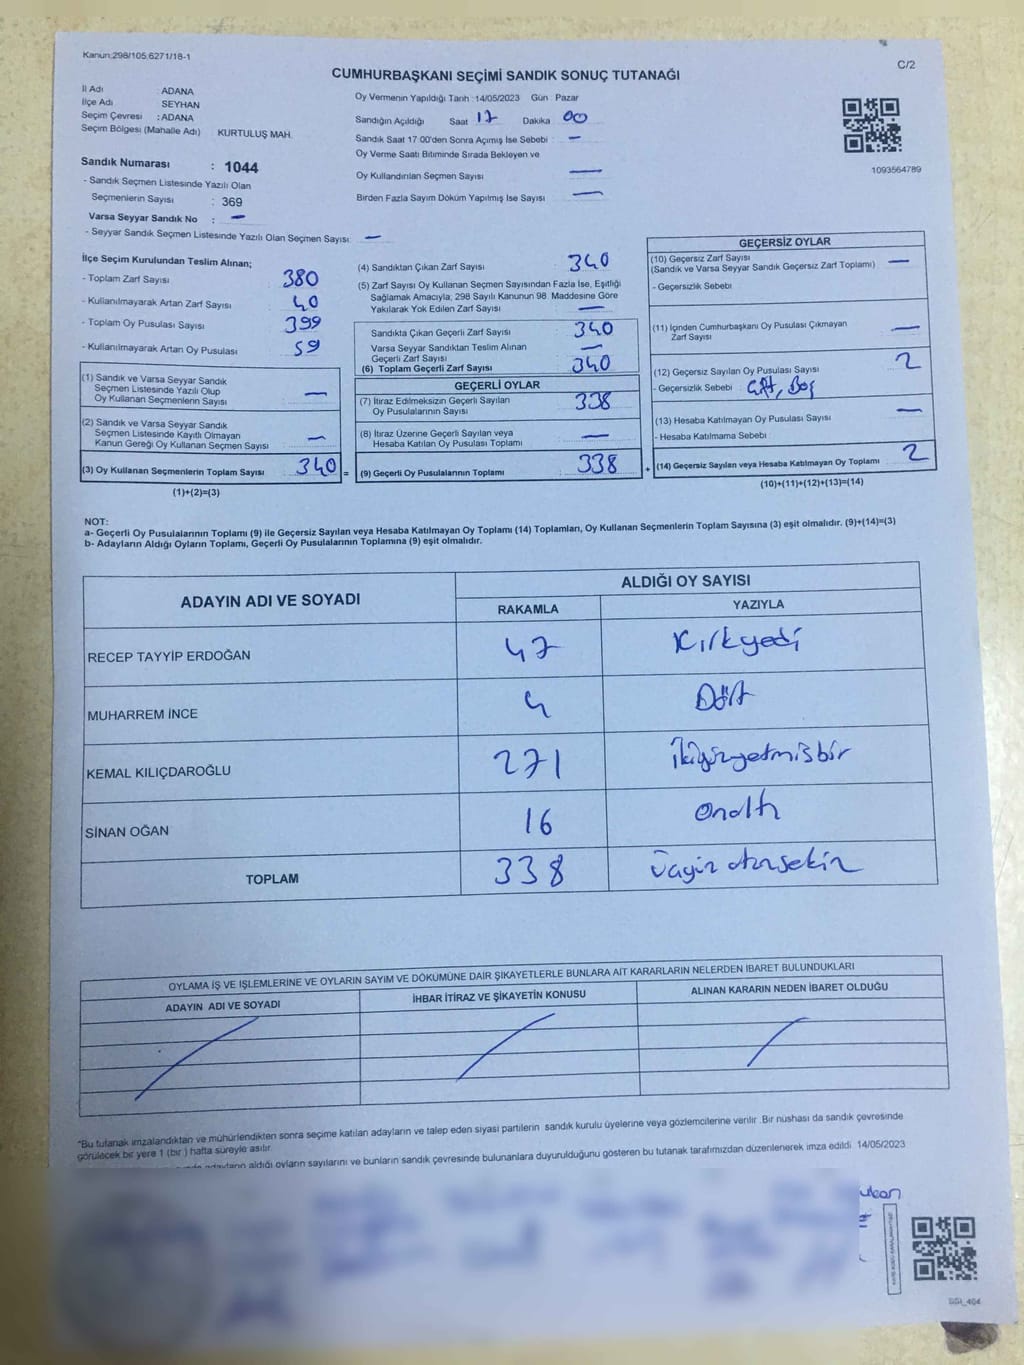 Kanun:298/105;6271/18-1
C/2
CUMHURBAŞKANI SEÇİMİ SANDIK SONUÇ TUTANAĞI
İl Adı : ADANA
İlçe Adı SEYHAN
Seçim Çevresi : ADANA
Seçim Bölgesi (Mahalle Adı) : KURTULUŞ MAH.
Sandık Numarası : 1044
- Sandık Seçmen Listesinde Yazılı Olan
Seçmenlerin Sayısı : 369
Varsa Seyyar Sandık No : -
- Seyyar Sandık Seçmen Listesinde Yazılı Olan Seçmen Sayısı: -
Oy Vermenin Yapıldığı Tarih :14/05/2023 Gün : Pazar
Sandığın Açıldığı Saat 17 Dakika 00
Sandık Saat 17:00'den Sonra Açılmış İse Sebebi : -
Oy Verme Saati Bitiminde Sırada Bekleyen ve
Oy Kullandırılan Seçmen Sayısı -
Birden Fazla Sayım Döküm Yapılmış İse Sayısı -
1093564789
İlçe Seçim Kurulundan Teslim Alınan;
- Toplam Zarf Sayısı 380
- Kullanılmayarak Artan Zarf Sayısı 40
- Toplam Oy Pusulası Sayısı 399
- Kullanılmayarak Artan Oy Pusulası 59
(1) Sandık ve Varsa Seyyar Sandık
Seçmen Listesinde Yazılı Olup
Oy Kullanan Seçmenlerin Sayısı -
(2) Sandık ve Varsa Seyyar Sandık
Seçmen Listesinde Kayıtlı Olmayan
Kanun Gereği Oy Kullanan Seçmen Sayısı -
(3) Oy Kullanan Seçmenlerin Toplam Sayısı 340 =
(1)+(2)=(3)
(4) Sandıktan Çıkan Zarf Sayısı 340
(5) Zarf Sayısı Oy Kullanan Seçmen Sayısından Fazla İse, Eşitliği
Sağlamak Amacıyla, 298 Sayılı Kanunun 98. Maddesine Göre
Yakılarak Yok Edilen Zarf Sayısı -
Sandıkta Çıkan Geçerli Zarf Sayısı 340
Varsa Seyyar Sandıktan Teslim Alınan
Geçerli Zarf Sayısı -
(6) Toplam Geçerli Zarf Sayısı 340
GEÇERLİ OYLAR
(7) İtiraz Edilmeksizin Geçerli Sayılan
Oy Pusulalarının Sayısı 338
(8) İtiraz Üzerine Geçerli Sayılan veya
Hesaba Katılan Oy Pusulası Toplamı -
(9) Geçerli Oy Pusulalarının Toplamı 338 +
GEÇERSİZ OYLAR
(10) Geçersiz Zarf Sayısı
(Sandık ve Varsa Seyyar Sandık Geçersiz Zarf Toplamı) -
- Geçersizlik Sebebi
(11) İçinden Cumhurbaşkanı Oy Pusulası Çıkmayan
Zarf Sayısı -
(12) Geçersiz Sayılan Oy Pusulası Sayısı 2
- Geçersizlik Sebebi : Çift, Boş
(13) Hesaba Katılmayan Oy Pusulası Sayısı -
- Hesaba Katılmama Sebebi
(14) Geçersiz Sayılan veya Hesaba Katılmayan Oy Toplamı 2
(10)+(11)+(12)+(13)=(14)
NOT:
a- Geçerli Oy Pusulalarının Toplamı (9) ile Geçersiz Sayılan veya Hesaba Katılmayan Oy Toplamı (14) Toplamları, Oy Kullanan Seçmenlerin Toplam Sayısına (3) eşit olmalıdır. (9)+(14)=(3)
b- Adayların Aldığı Oyların Toplamı, Geçerli Oy Pusulalarının Toplamına (9) eşit olmalıdır.
ADAYIN ADI VE SOYADI
ALDIĞI OY SAYISI
RAKAMLA YAZIYLA
RECEP TAYYİP ERDOĞAN 47 Kırkyedi
MUHARREM İNCE 4 Dört
KEMAL KILIÇDAROĞLU 271 İkiyüzyetmişbir
SİNAN OĞAN 16 Onaltı
TOPLAM 338 Üçyüz otuzsekiz
OYLAMA İŞ VE İŞLEMLERİNE VE OYLARIN SAYIM VE DÖKÜMÜNE DAİR ŞİKAYETLERLE BUNLARA AİT KARARLARIN NELERDEN İBARET BULUNDUKLARI
ADAYIN ADI VE SOYADI İHBAR İTİRAZ VE ŞİKAYETİN KONUSU ALINAN KARARIN NEDEN İBARET OLDUĞU
*Bu tutanak imzalandıktan ve mühürlendikten sonra seçime katılan adayların ve talep eden siyasi partilerin sandık kurulu üyelerine veya gözlemcilerine verilir. Bir nüshası da sandık çevresinde
görülecek bir yere 1 (bir) hafta süreyle asılır.
adayların aldığı oyların sayılarını ve bunların sandık çevresinde bulunanlara duyurulduğunu gösteren bu tutanak tarafımızdan düzenlenerek imza edildi. 14/05/2023